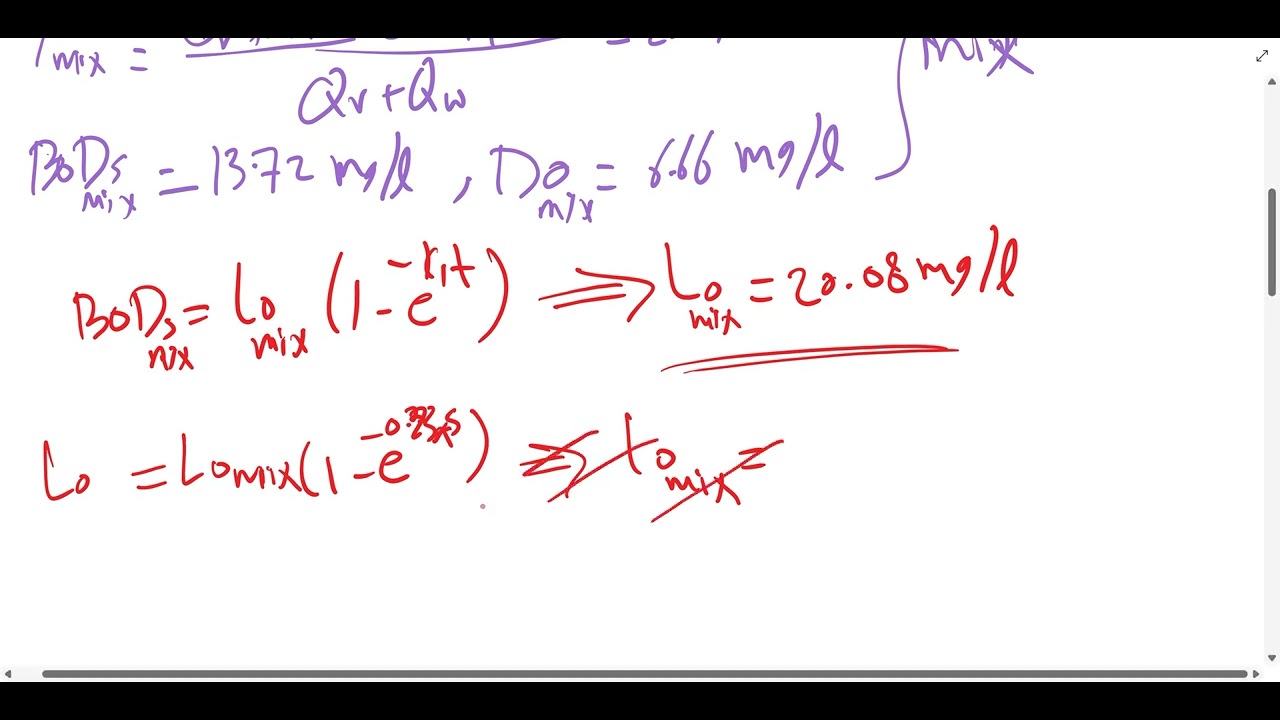 mix =
Qr + Qw
mix
BOD5 mix = 13.72 mg/l , DO mix = 6.66 mg/l
BOD5 mix = Lo mix (1 - e^-k1t) ⟹ Lo mix = 20.08 mg/l
Lo = Lo mix (1 - e
Lo mix =